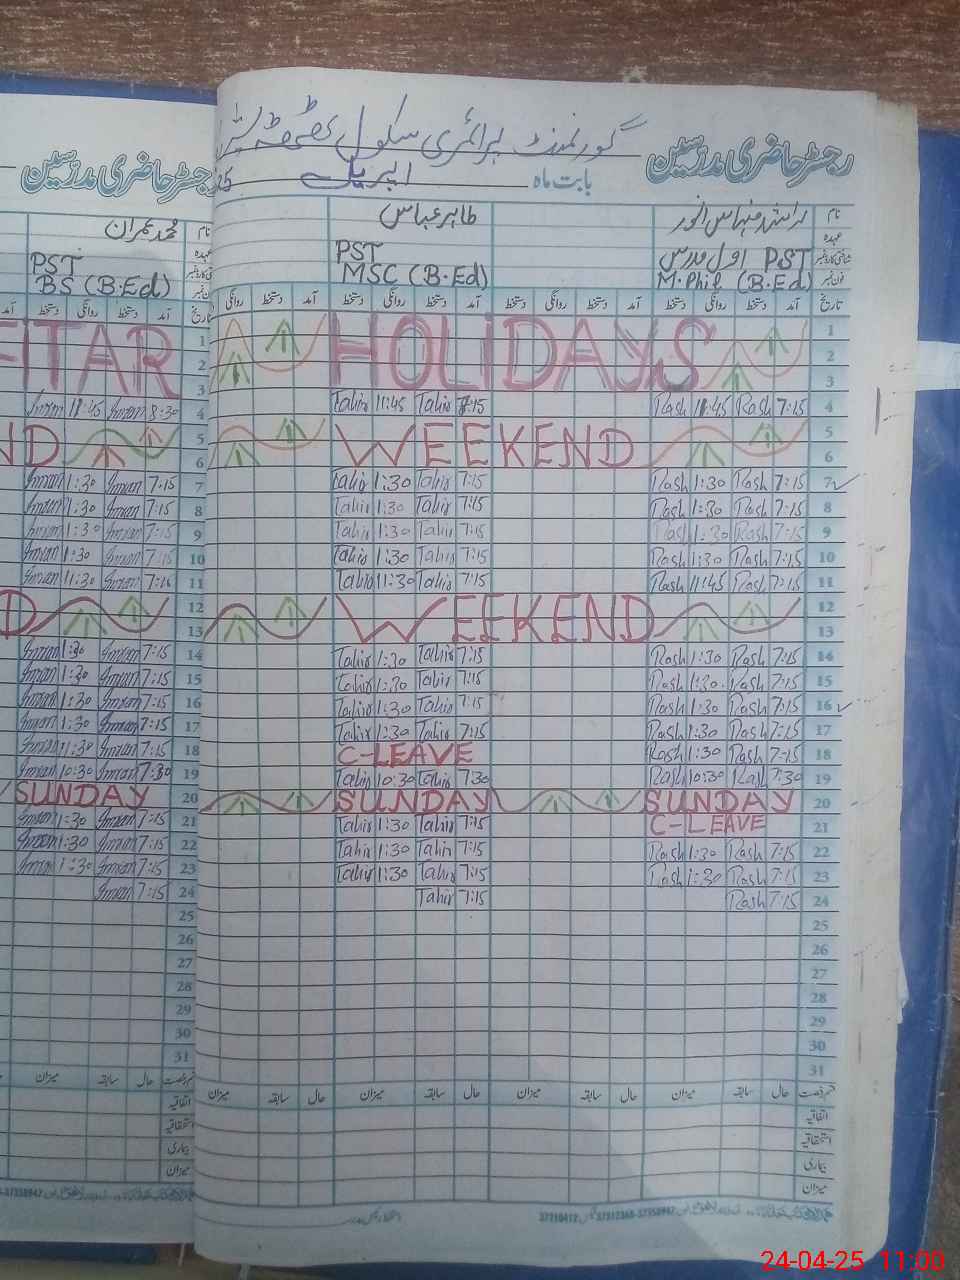 گورنمنٹ پرائمری سکول
رجسٹر حاضری مدرسین
بابت ماہ اپریل 25
رجسٹر حاضری مدرسین
نام
طاہر عباس
نام محمد عمران
عہدہ
PST اول مدرس
PST
عہدہ PST
M.Phil (B.Ed)
MSC (B.Ed)
BS (B.Ed)
تاریخ آمد دستخط روانگی دستخط آمد دستخط روانگی دستخط آمد دستخط روانگی
تاریخ آمد دستخط روانگی دستخط آمد
FITAR HOLiDAYS 1
1
2
2
3
3
Imran 11:45 Imran 8:30 4 Tahir 11:45 Tahir 7:15 Rash 11:45 Rash 7:15 4
ND 5 WEEKEND 5
6 6
Imran 1:30 Imran 7:15 7 Tahir 1:30 Tahir 7:15 Rash 1:30 Rash 7:15 7
Imran 1:30 Imran 7:15 8 Tahir 1:30 Tahir 7:15 Rash 1:30 Rash 7:15 8
Imran 1:30 Imran 7:15 9 Tahir 1:30 Tahir 7:15 Rash 1:30 Rash 7:15 9
Imran 1:30 Imran 7:15 10 Tahir 1:30 Tahir 7:15 Rash 1:30 Rash 7:15 10
Imran 11:30 Imran 7:15 11 Tahir 11:30 Tahir 7:15 Rash 11:45 Rash 7:15 11
D 12 WEEKEND 12
13 13
Imran 1:30 Imran 7:15 14 Tahir 1:30 Tahir 7:15 Rash 1:30 Rash 7:15 14
Imran 1:30 Imran 7:15 15 Tahir 1:30 Tahir 7:15 Rash 1:30 Rash 7:15 15
Imran 1:30 Imran 7:15 16 Tahir 1:30 Tahir 7:15 Rash 1:30 Rash 7:15 16
Imran 1:30 Imran 7:15 17 Tahir 1:30 Tahir 7:15 Rash 1:30 Rash 7:15 17
Imran 1:30 Imran 7:15 18 C-LEAVE Rash 1:30 Rash 7:15 18
Imran 10:30 Imran 7:30 19 Tahir 10:30 Tahir 7:30 Rash 10:30 Rash 7:30 19
SUNDAY 20 SUNDAY SUNDAY 20
Imran 1:30 Imran 7:15 21 Tahir 1:30 Tahir 7:15 C-LEAVE 21
Imran 1:30 Imran 7:15 22 Tahir 1:30 Tahir 7:15 Rash 1:30 Rash 7:15 22
Imran 1:30 Imran 7:15 23 Tahir 1:30 Tahir 7:15 Rash 1:30 Rash 7:15 23
Imran 7:15 24 Tahir 7:15 Rash 7:15 24
25 25
26 26
27 27
28 28
29 29
30 30
31 31
حال سابقہ میزان حال سابقہ میزان حال سابقہ میزان
حال سابقہ میزان
اتفاقیہ
اتفاقیہ
استحقاقیہ
استحقاقیہ
بیماری
بیماری
میزان
میزان
24-04-25 11:00